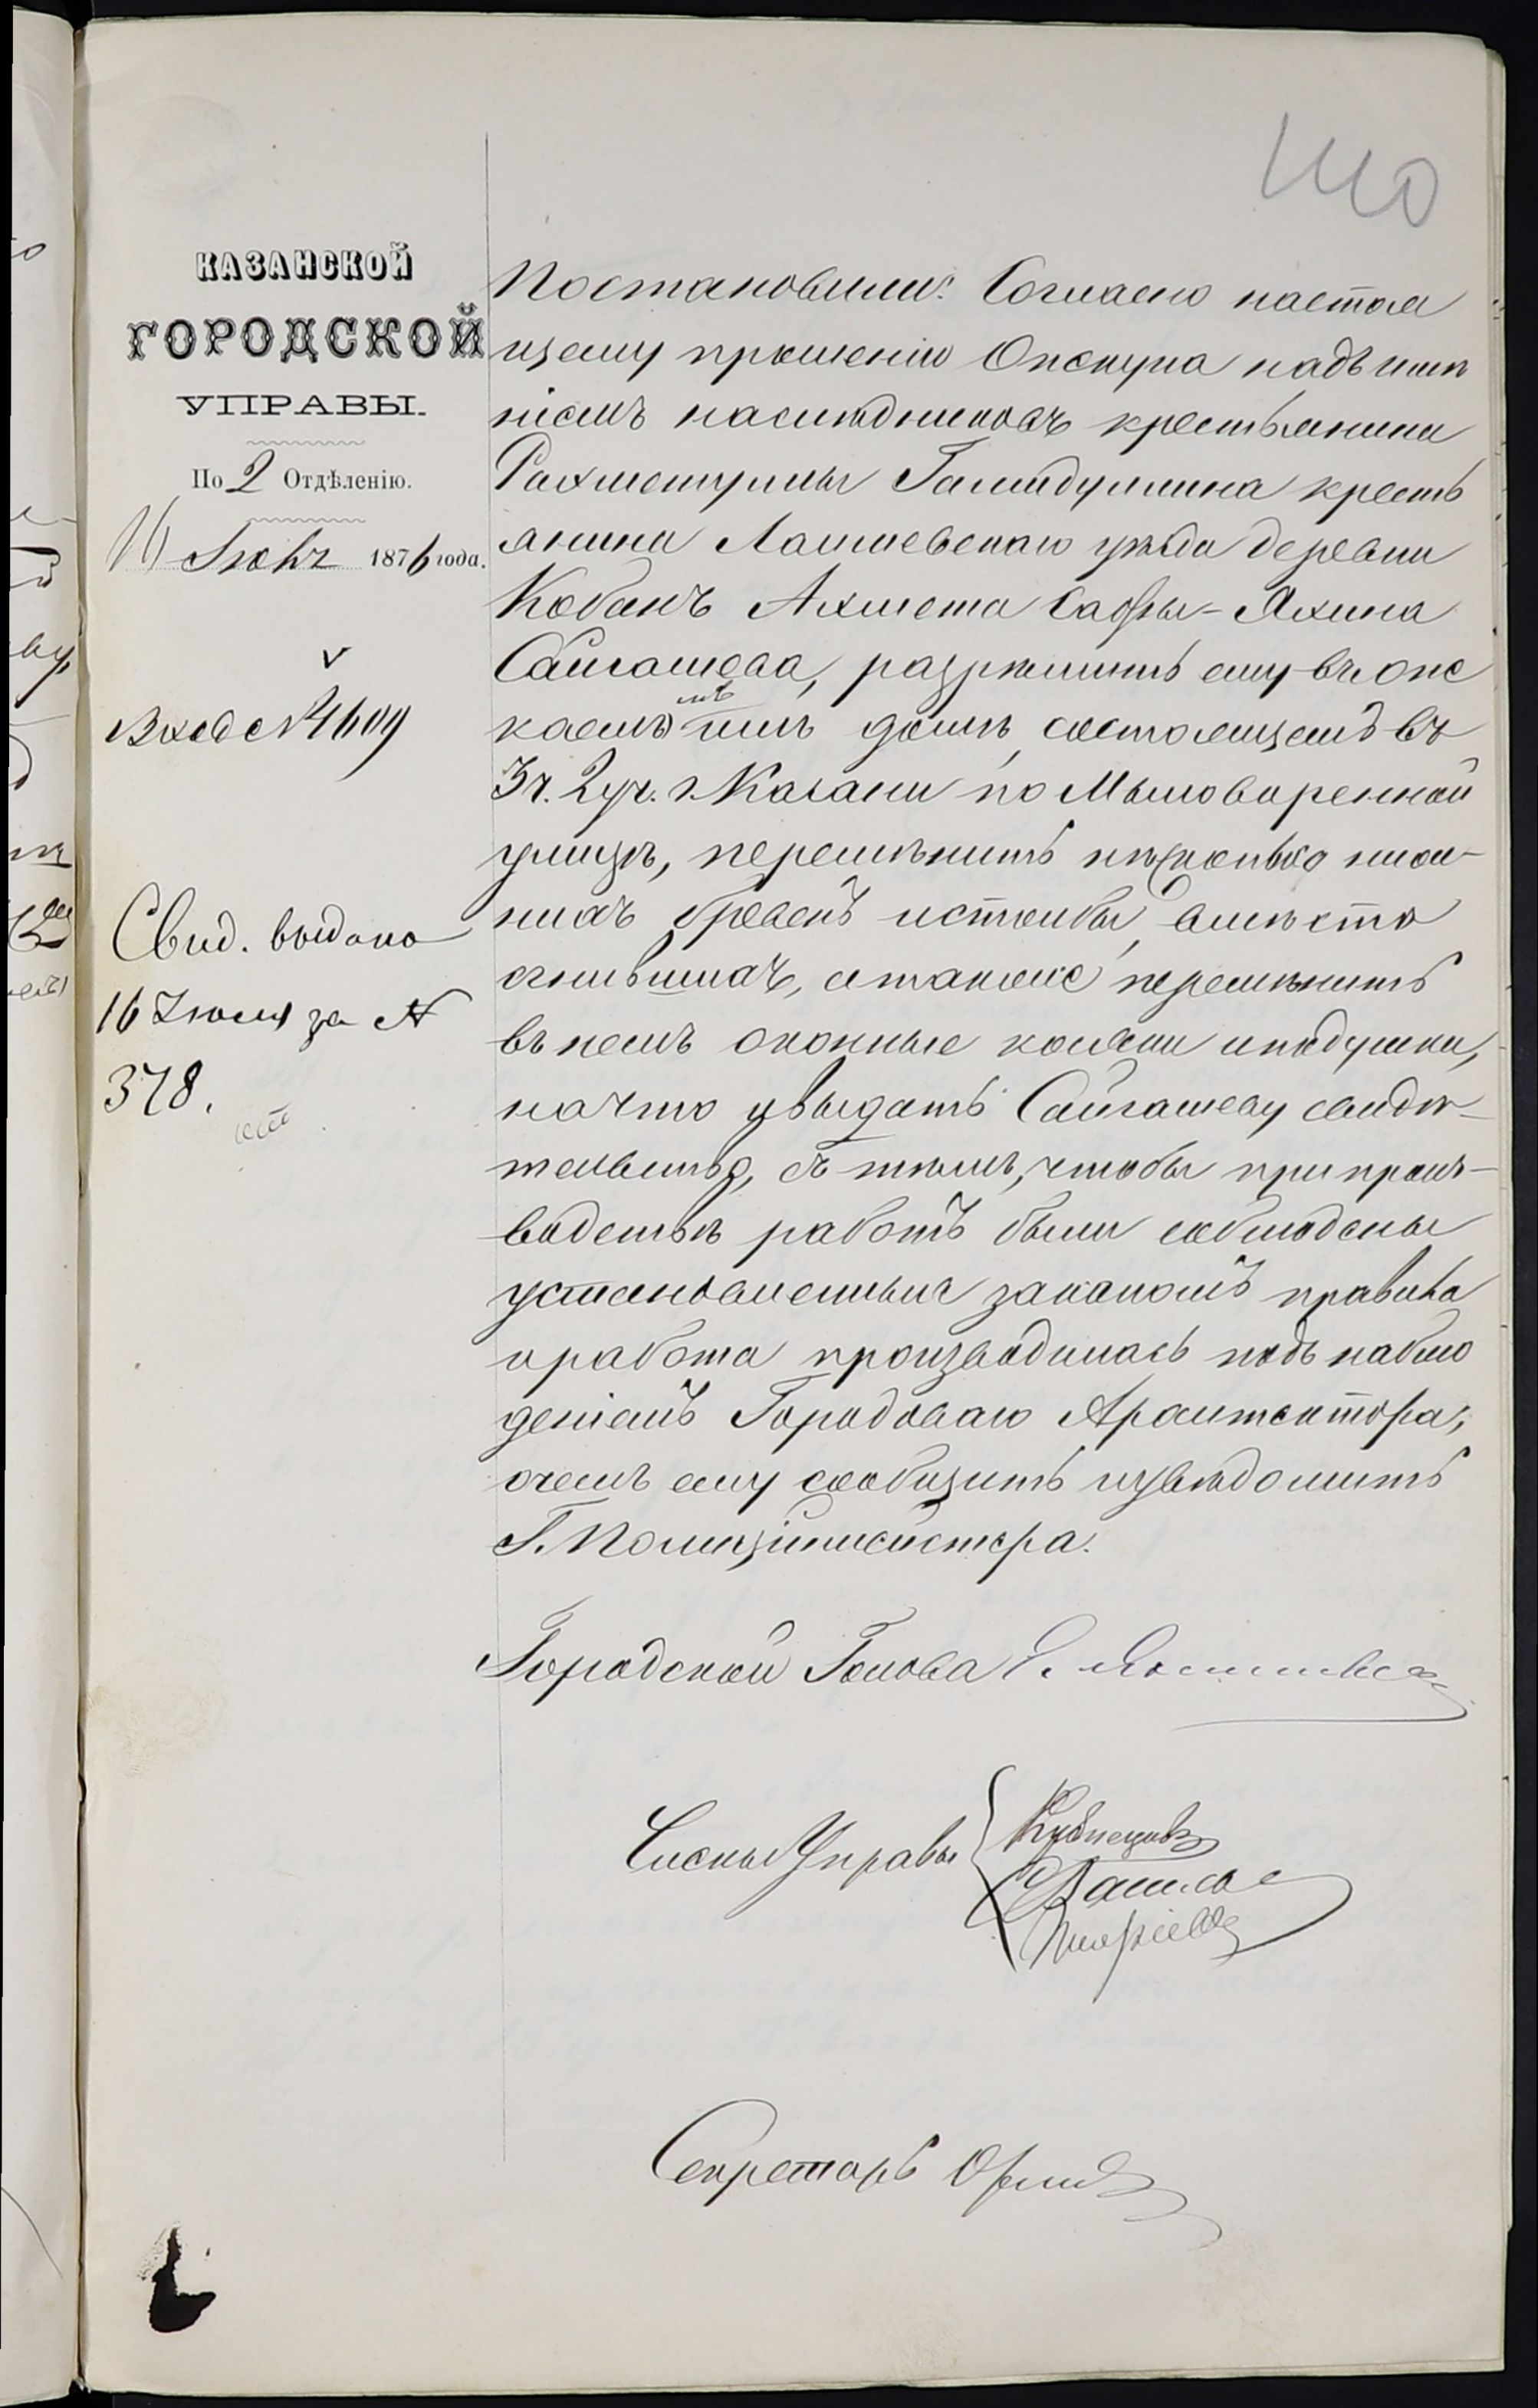 КАЗАНСКОЙ
ГОРОДСКОЙ
УПРАВЫ.
По 2 Отдѣленію.
16 1876 года.
Вход № 4609
Свид. выдано
16 Іюля за №
378.
Постановили: Согласно настоя
щему прошенію Опекуна надъ имѣ
ніемъ наслѣдниковъ крестьянина
Рахметуллы Галидуллина кресть
янина Лаишевскаго уѣзда деревни
Кобанъ Ахмета Сафы-Яхина
Сайгашева, разрѣшить ему въ опе
каемомъ имъ домѣ, состоящемъ въ
3 ч. 2 уч. г. Казани по Мыловаренной
улицѣ, перемѣнить нѣсколько ниж-
нихъ бревенъ и столбы, вмѣсто
сгнившихъ, а также перемѣнить
въ немъ оконные косяки и подушки,
на что и выдать Сайгашеву свидѣ-
тельство, съ тѣмъ, чтобы при произ-
водствѣ работъ были соблюдены
установленныя закономъ правила
и работа производилась подъ наблю
деніемъ Городоваго Архитектора,
о чемъ ему сообщить и увѣдомить
Г. Полиціймейстера.
Городской Голова
Члены Управы
Кузнецовъ
Секретарь